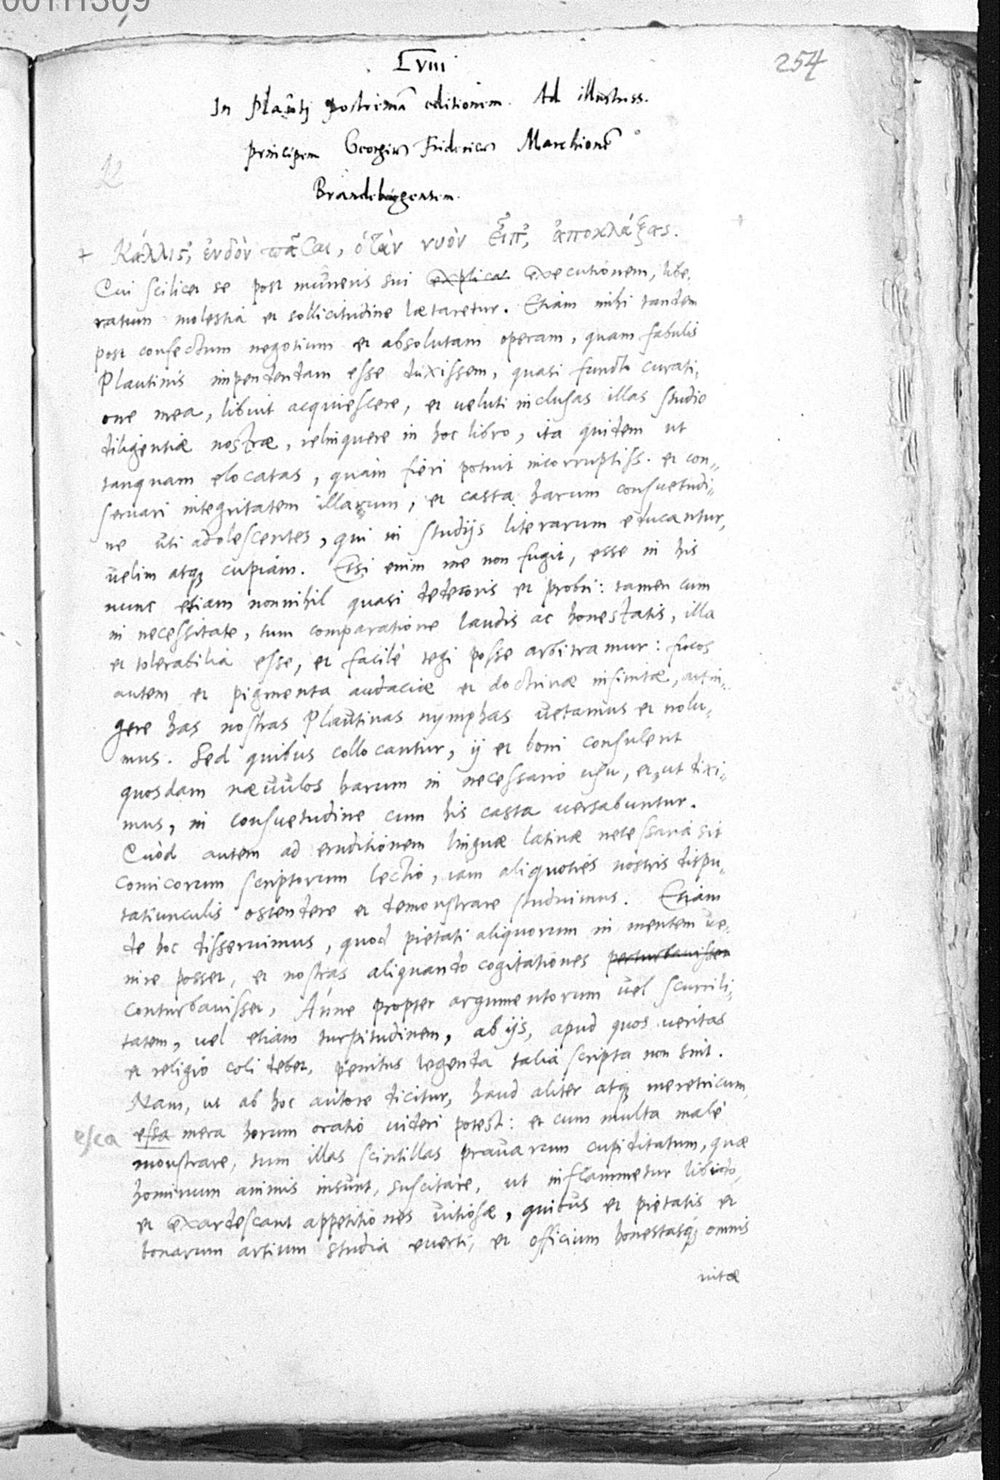 254
Lviii
In Plauti postremā editionem. Ad illustriss.
principem Georgiū Fridericū Marchionē
Brandebūrgensem.
Cui scilicet se post muneris sui explicat executionem, libe,
ratum molestia et sollicitudine lætaretur. Etiam mihi tandem
post confectum negotium et absolutam operam, quam fabulis
Plautinis impendendam esse duxissem, quasi functo curati,
one mea, libuit acquiescere, et veluti inclusas illas studio
diligentiæ nostræ, relinquere in hoc libro, ita quidem ut
tanquam elocatas, quam fieri potuit incorruptiss. et con,,
servari integritatem illarum, et casta harum consuetudi,
ne uti adolescentes, qui in studijs literarum educantur,
velim atq; cupiam. Etsi enim me non fugit, esse in his
nunc etiam nonnihil quasi dedecoris et probri: tamen cum
in necessitate, tum comparatione laudis ac honestatis, illa
et tolerabilia esse, et facilè tegi posse arbitramur: fucos
autem et pigmenta audaciæ et doctrinæ infinitæ, attin,
gere has nostras Plautinas nymphas vetamus et nolu,
mus. Sed quibus collocantur, ij et boni consulent
quosdam nævulos harum in necessario usu, et, ut dixi,
mus, in consuetudine cum his casta versabuntur.
Quòd autem ad eruditionem linguæ latinæ necessaria sit
comicorum scriptorum lectio, iam aliquoties nostris dispu,
tatiunculis ostendere et demonstrare studuimus. Etiam
de hoc disseruimus, quod pietati aliquorum in mentem ve,
nire posset, et nostras aliquando cogitationes perturbavisset
conturbavisset, Anne propter argumentorum vel scurrili,
tatem, vel etiam turpitudinem, ab ijs, apud quos veritas
et religio coli debet, penitus legenda talia scripta non sint.
Nam, ut ab hoc autore dicitur, haud aliter atq; meretricum,
esca essa mera horum oratio videri potest: et cum multa malè
monstrare, tum illas scintillas pravarum cupiditatum, quæ
hominum animis insunt, suscitare, ut inflammetur libido,
et exardescant appetitiones vitiosæ, quibus et pietatis et
bonarum artium studia everti, et officium honestasq; omnis
vitæ